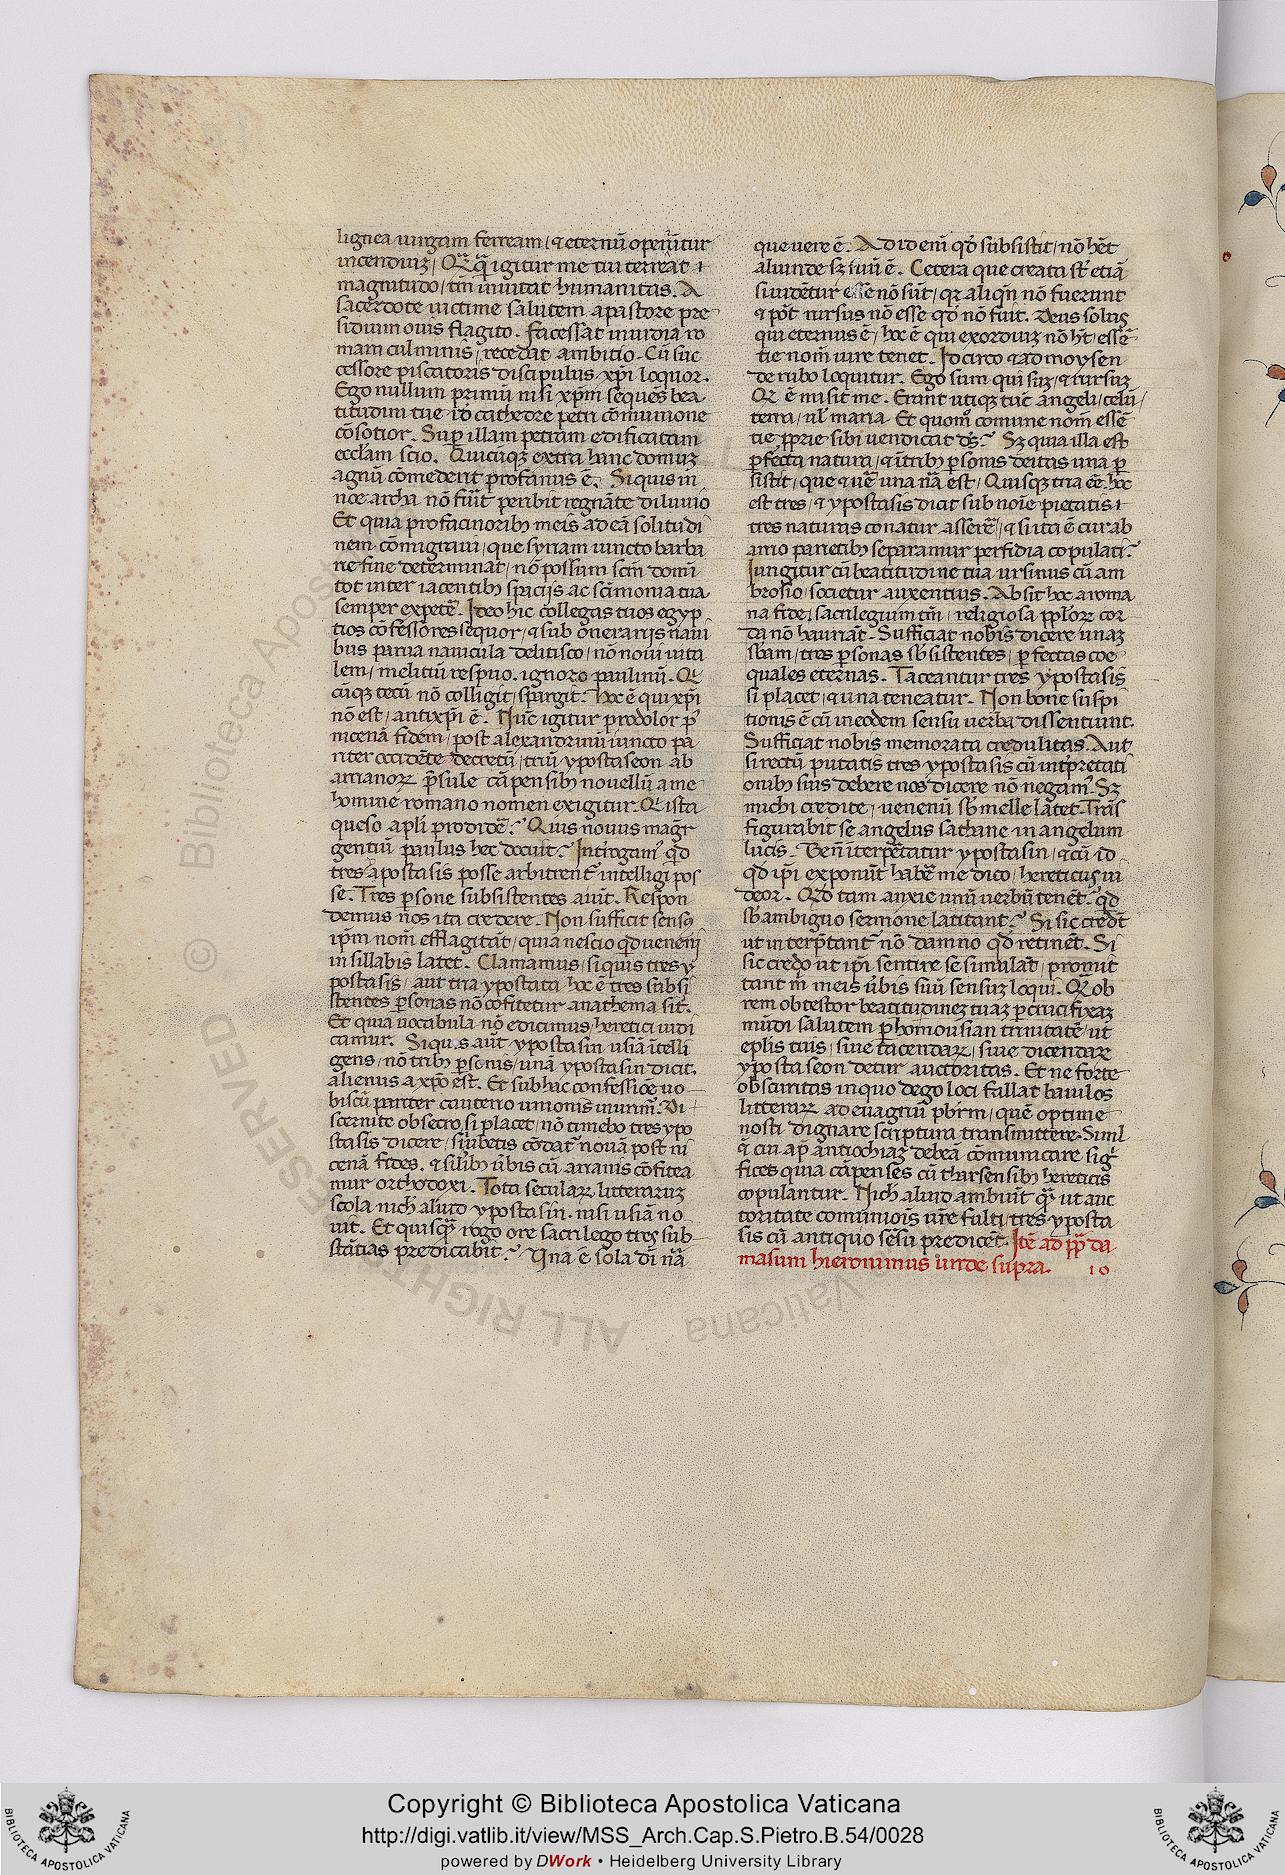 lignea uirgam ferream / ⁊ eternũ operiũtur
incendiuꝫ / Q̃q̃ igitur me tui terreat
magnitudo / tm̃ inuitat humanitas. A
sacerdote uictime salutem a pastore pre
sidium ouis flagito. Facessat inuidia ro
mani culminis / recedat ambitio. Cũ suc
cessore piscatoris ⁊ discipulus xp̃i loquor.
Ego nullum primũ nisi xp̃m sequẽs bea
titudini tue ido cathedre petri cõmunione
cõsotior. Suꝑ illam petram edificatam
eccl̃am scio. Quicũqꝫ extra hanc domuꝫ
agnũ comederit profanus ẽ. Siquis in
noe archa nõ fũit peribit regnãte diluuio
Et quia pro facinoribꝫ meis ad eã solitudi
nem cõmigraui / que syriam iuncto barba
rie fine determinat / nõ possum sc̃m domĩ
tot inter iacentibꝫ spaciis ac sc̃imonia tua
semper expetẽ. Ideo hic collegas tuos egyp
tios cõfessores sequor / ⁊ sub onerariis naui
bus parua nauicula delitisco / nõ noui uita
lem / melitiũ respuo. ignoro paulinũ. Qi
cũqꝫ tecũ nõ colligit / spargit. Hoc ẽ qui xp̃i
nõ est / antixp̃i ẽ. Nũc igitur prodolor p̃
nicenã fidem / post alexandrinũ iuncto pa
riter occidẽte decretũ / triũ ypostaseon ab
arrianoꝝ p̃sule cãpensibꝫ nouellũ a me
homine romano nomen exigitur. Qi ista
queso apl̃i prodidẽ? Quis nouus magr̃
gentiũ paulus hec docuit? Int̃rogamꝰ qd̃
tres ypostasis posse arbitrent̃ intelligi pos
se. Tres ꝑsone subsistentes aiũt. Respon
demus nos ita credere. Non sufficit sensꝰ
ip̃m nom̃ efflagitãt / quia nescio qd̃ ueneni
in sillabis latet. Clamamus / si quis tres y
postasis / aut tria ypostata hoc ẽ tres subsi
stentes ꝑsonas nõ cõfitetur anathema sit.
Et quia uocabula nõ edicimus / heretici iudi
camur. Siquis aũt ypostasin usiã ĩtelli
gens / nõ tribꝫ ꝑsonis / unã ypostasin dicit.
alienus a xp̃o est. Et sub hac confessiõe uo
biscũ pariter cauterio unionis inurim̃. Di
scernite obsecro / si placet / nõ timebo tres ypo
stasis dicere / si iubetis cõdat̃ noua post ni
cenã fides. ⁊ sil̃ibꝫ ũbis cũ arrianis cõfitea
mur orthodoxi. Tota seculariꝫ litterarũꝫ
scola nich̃ aliud ypostasin. nisi usiã no
uit. Et quisq̃ rogo ore sacrilego tres sub
stãtias predicabit? Una ẽ sola di̇̃ nr̃a
que uere ẽ. Ad id eni̇̃ qd̃ subsistit / nõ hẽt
aliunde sꝫ suũ ẽ. Cetera que creata st̃ etiã
si uidẽtur esse nõ sũt / qꝛ aliqñ nõ fuerunt
⁊ põt rursus nõ esse qd̃ nõ fuit. Deus solus
qui eternus ẽ / hoc ẽ qui exordiuꝫ nõ ht̃ / essẽ
tie nom̃ uire tenet. Idcirco ⁊ ad moysen
de rubo loquitur. Ego sum qui suꝫ / ⁊ rursuꝫ
Qi ẽ misit me. Erant utiqꝫ tũc angeli / celũ /
terra / ul̃ maria. Et quomõ comune nom̃ essẽ
tie ꝓprie sibi uendicat dr̃s? Sꝫ quia illa est
ꝑfecta natura / ⁊ ĩ tribꝫ ꝑsonis deitas una ꝑ
sistit / que ⁊ uẽ una nr̃a est / Quisqꝫ tria eẽ hoc
est tres / ⁊ ypostasis dicit sub noĩe pietatis
tres naturas conatur asserẽ / ⁊ si ita ẽ cur ab
arrio parietibꝫ separamur perfidia copulati?
Iungitur cũ beatitudine tua ursinus cũ am
brosio / societur auxentius. Absit hoc a roma
na fide / sacrilegium tm̃ / religiosa ppl̃oꝝ cor
da nõ hauriãt. Sufficiat nobis dicere unaꝫ
sb̃am / tres ꝑsonas sb̃sistentes / ꝑfectas coe
quales eternas. Taceantur tres ypostasis
si placet / ⁊ una teneatur. Non bone suspi
tionis ẽ cũ in eodem sensu uerba dissentiunt.
Sufficiat nobis memorata credulitas. Aut
si rectũ putatis tres ypostasis cũ int̃pretati
onibꝫ suis debere nos dicere nõ negamꝰ. Sꝫ
michi credite / uenenũ sb̃ melle latet. Trãs
figurabit se angelus sathane in angelum
lucis. Beñ ĩterp̃tatur ypostasin / ⁊ cũ id
qd̃ ip̃i exponũt habẽ me dico / hereticus iu
deor. Qd̃ tam anxie unũ uerbũ tenẽt? qd̃
sb̃ ambiguo sermone latitant? Si sic credũt
ut interp̃tant̃ nõ damno qd̃ retinẽt. Si
sic credo ut ip̃i sentire se simulãt / ꝑmit
tant m̃ meis ũbis suũ sensuꝫ loqui. Qm̃ ob
rem obtestor beatitudineꝫ tuaꝫ ꝑ crucifixaꝫ
mũdi salutem ꝑ homousian trinitatẽ / ut
eplis tuis / siue tacendaꝝ / siue dicendaꝝ
ypostaseon detur auctoritas. Et ne forte
obscuritas in quo dego loci fallat baiulos
litteraꝝ ad euagriũ pb̃rm / quẽ optime
nosti dignare scriptura transmittere. Siml̃
q̃ cui ap̃ antiochiaꝫ debeã comunicare sig̃
fices quia cãpenses cũ tharsensibꝫ hereticis
copulantur. Nich̃ aliud ambiũt q̃ ut auc
toritate comuniois ur̃e fulti tres yposta
sis cũ antiquo sẽsu predicẽt. Itẽ ad pp̃ da
masum hieronimus ũnde supra. 10
Copyright © Biblioteca Apostolica Vaticana
http://digi.vatlib.it/view/MSS_Arch.Cap.S.Pietro.B.54/0028
powered by DWork • Heidelberg University Library